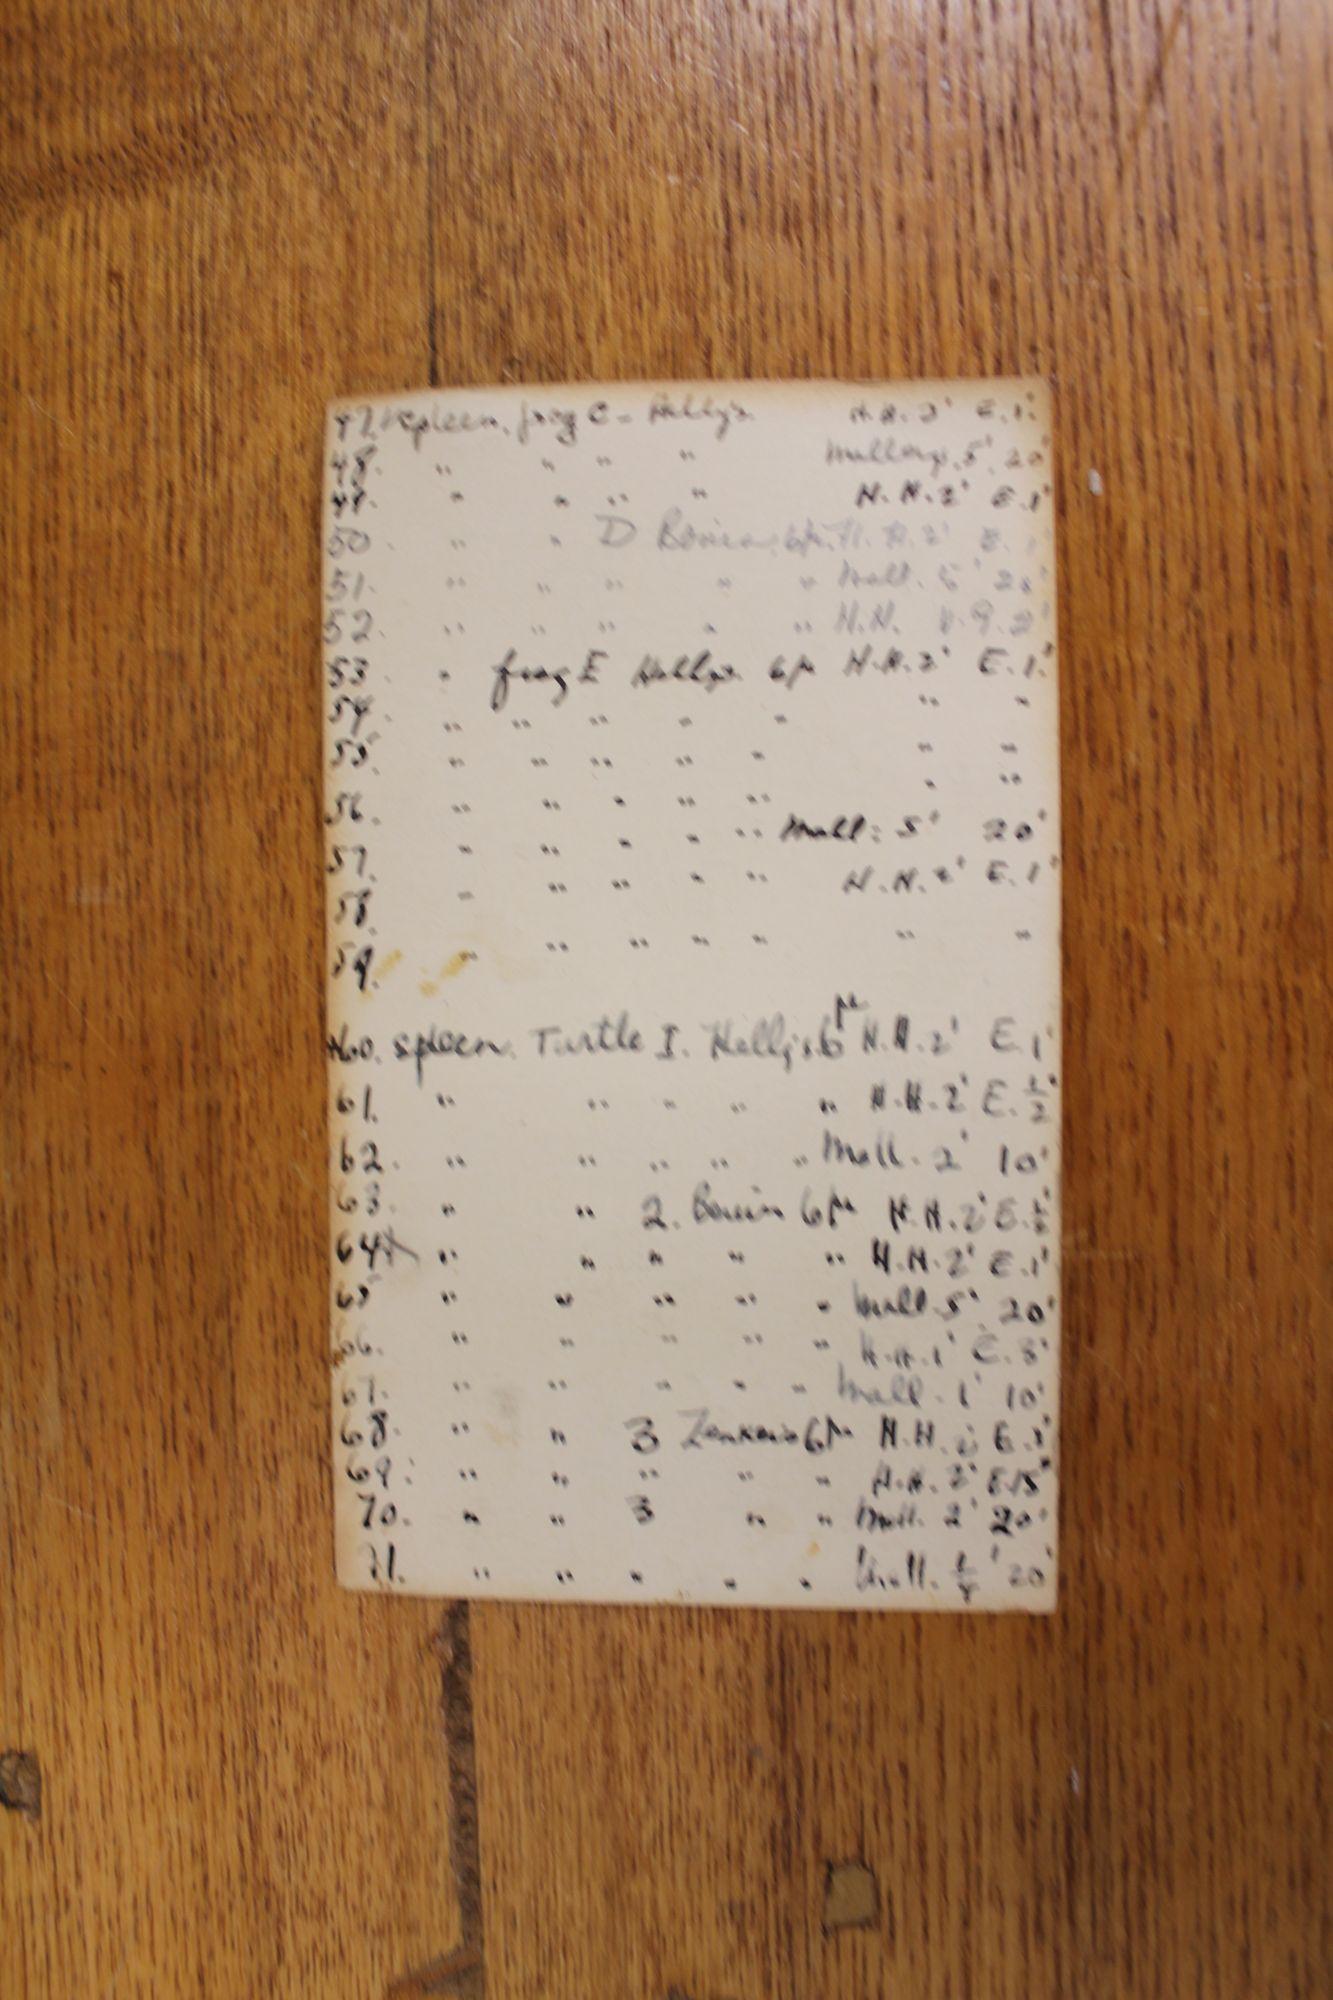 47. spleen. frog C - Helly's H.H. 2' E. 1'
48. " " " " Mallory. 5'. 20'
49. " " " " H.H. 2' E. 1'
50. " " D Bouin 6µ. H.H. 2' E. 1
51. " " " " " Mall. 5' 20'
52. " " " " " H.H. 2'
53 " frog E Helly's 6µ H.H. 2' E. 1'
54. " " " " " " "
55. " " " " " " "
56. " " " " " " "
57. " " " " " Mall: 5' 20'
58. " " " " " H.H. 2' E. 1'
59. " " " " " " "
60. spleen. Turtle I. Helly's 6µ H.H. 2' E. 1'
61. " " " " " H.H. 2' E. ½'
62. " " " " " Mall. 2' 10'
63. " " 2. Bouin 6µ H.H. 2' E. ½'
64 " " " " " H.H. 2' E. 1'
65 " " " " " Mall. 5' 20'
66. " " " " " H.H. 1' E. 3'
67. " " " " " Mall. 1' 10'
68. " " 3 Zenker's 6µ H.H. 2' E.
69. " " " " " H.H. 2' E. 15"
70. " " 3 " " Mall. 2' 20'
71. " " " " " Mall. 20'